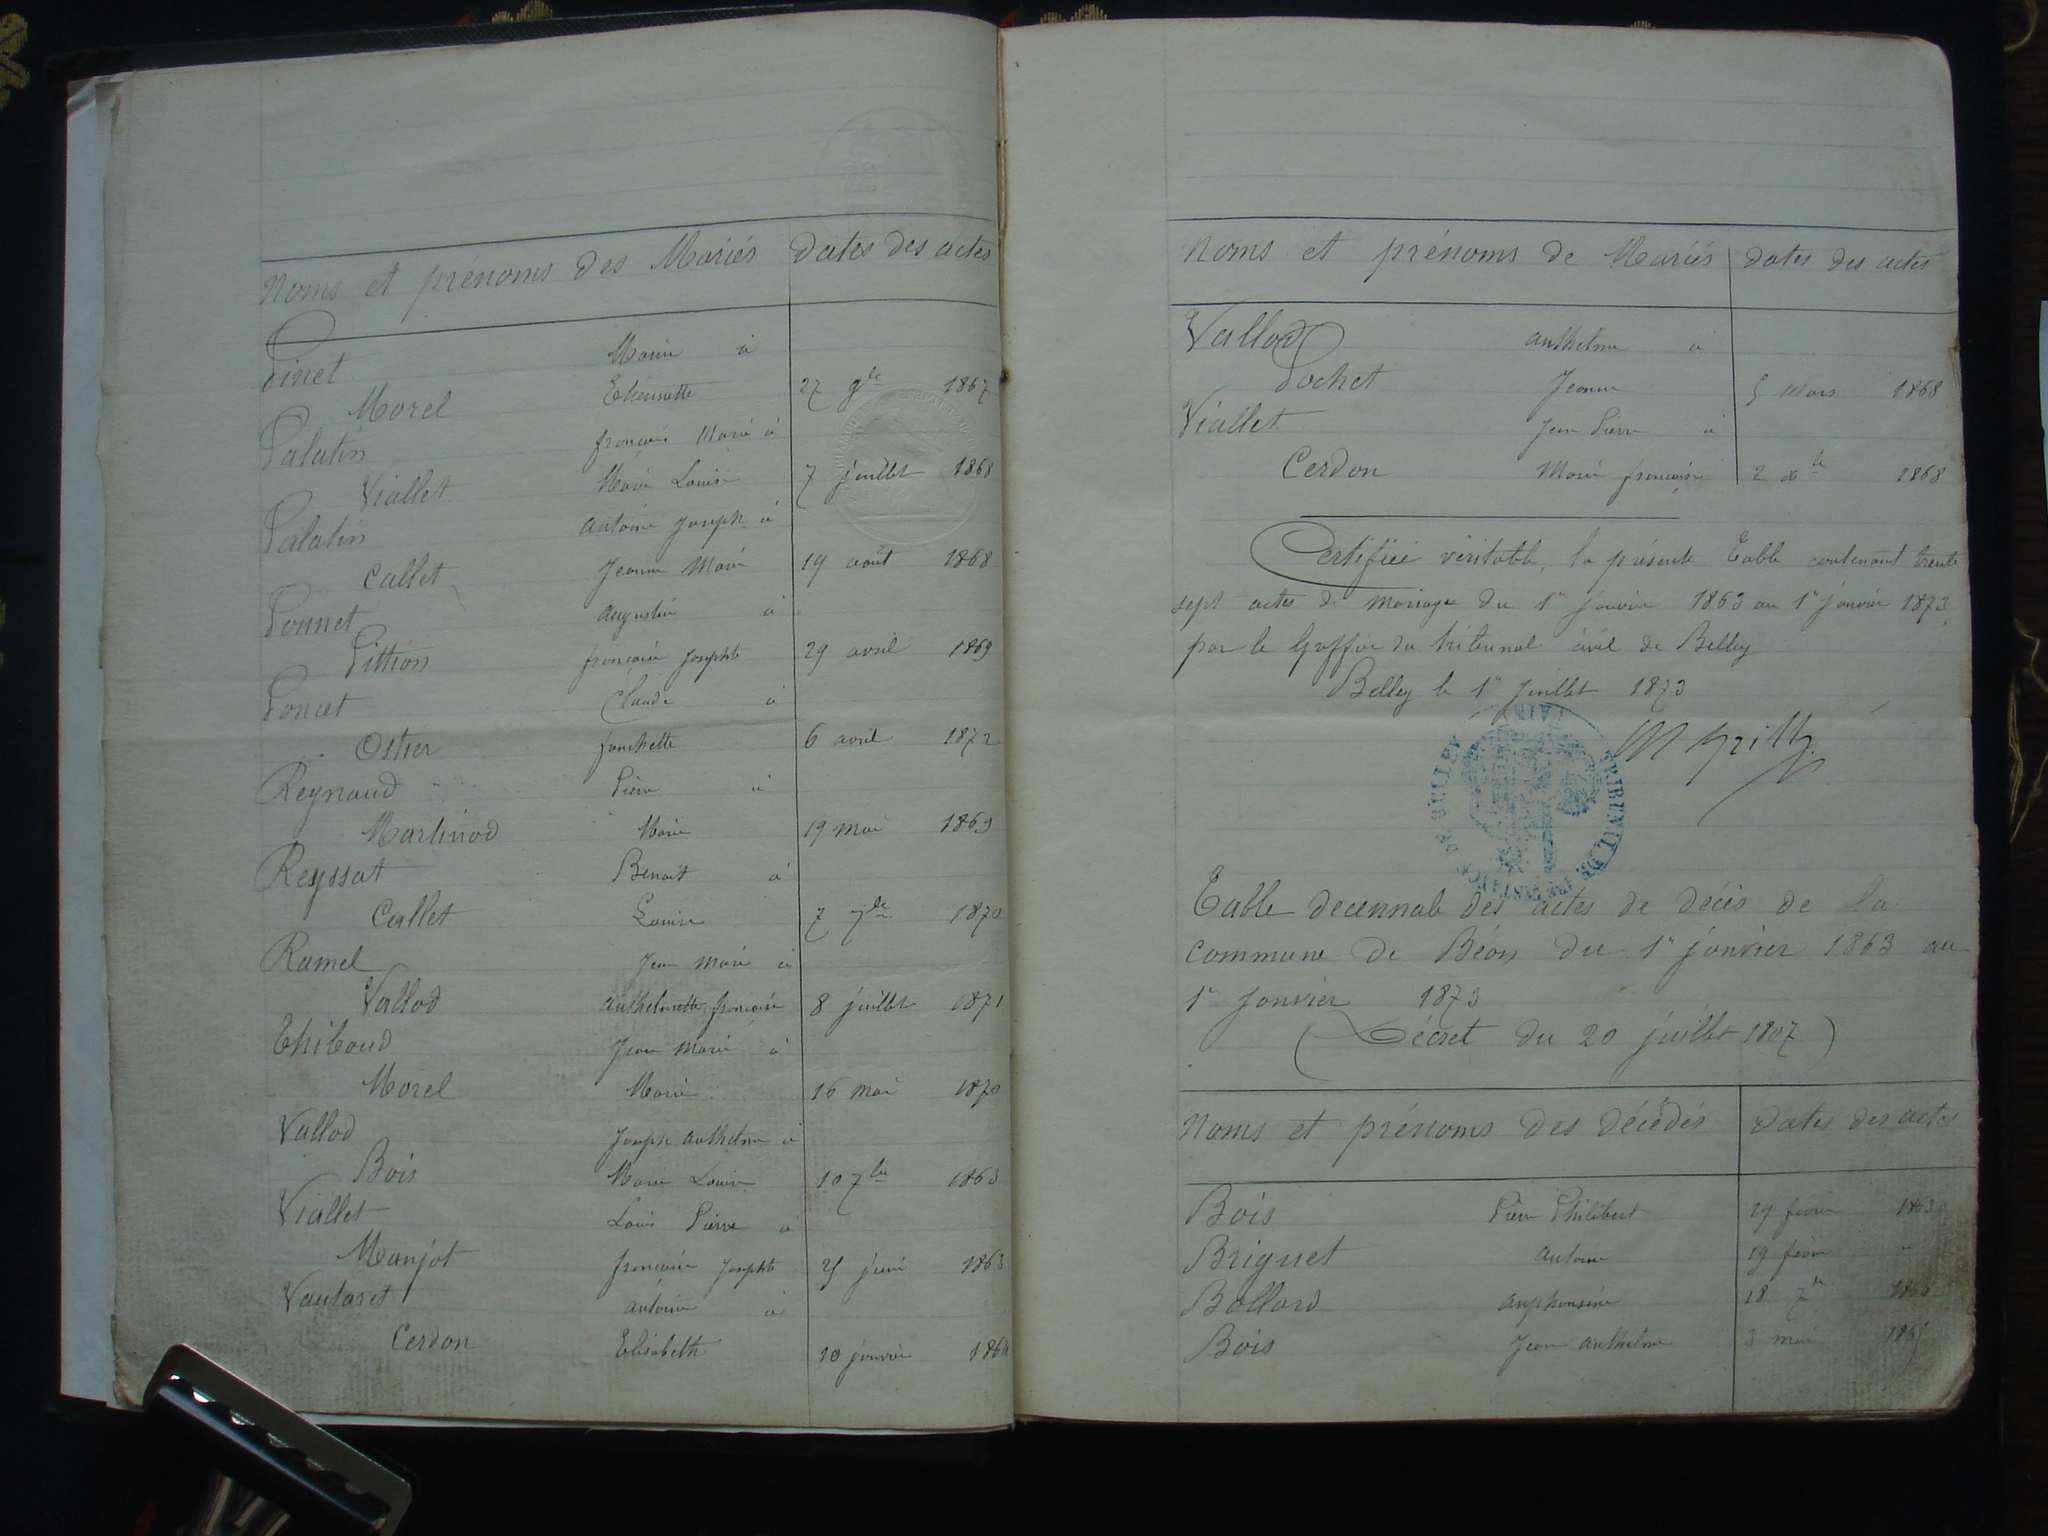 Noms et prénoms des Mariés Dates des actes
Pinet Marie à
Morel Etiennette 27 9bre 1867
Palatin françois Marie à
Viallet Marie Louise 7 juillet 1868
Palatin antoine Joseph à
Callet Jeanne Marie 19 août 1868
Ponnet augustin à
Pittion françoise Josephte 29 avril 1869
Poncet Claude à
Ostier fanchette 6 avril 1872
Reynaud Pierre à
Martinod Marie 19 mai 1869
Reyssat Benoit à
Callet Louise 7 7bre 1870
Ramel Jean Marie à
Vallod anthelmette françoise 8 juillet 1871
Thiboud Jean Marie à
Morel Marie 16 mai 1870
Vallod Joseph anthelme à
Bois Marie Louise 10 7bre 1863
Viallet Louis Pierre à
Manjot françoise Josephte 25 juin 1863
Vautaret antoine à
Cerdon Elisabeth 10 janvier 1864
Noms et prénoms de Mariés Dates des actes
Vallod anthelme à
Pochet Jeanne 5 Mars 1868
Viallet Jean Pierre à
Cerdon Marie françoise 2 xbre 1868
Certifiée véritable, la présente Table contenant trente
sept actes de Mariage du 1er Janvier 1863 au 1er janvier 1873,
par le Greffier du tribunal civil de Belley
Belley le 1er Juillet 1873
TRIBUNAL DE 1ère INSTANCE DE BELLEY (AIN)
Table decennale des actes de décès de la
commune de Béon du 1er janvier 1863 au
1er Janvier 1873
(Décret du 20 juillet 1807)
Noms et prénoms des décédés Dates des actes
Bois Pierre Philibert 29 février 1863
Briguet antoine 19 février "
Bollard anphonsine 18 7bre 1866
Bois Jean anthelme 3 mai 1865